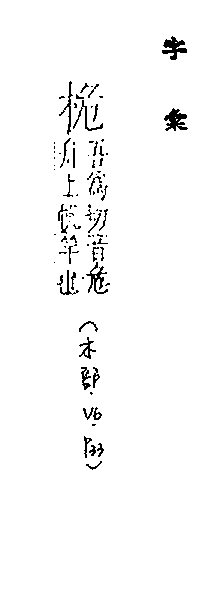 字彙
桅
吾爲切音危
舟上帆竿也
(木部.V6.P33)